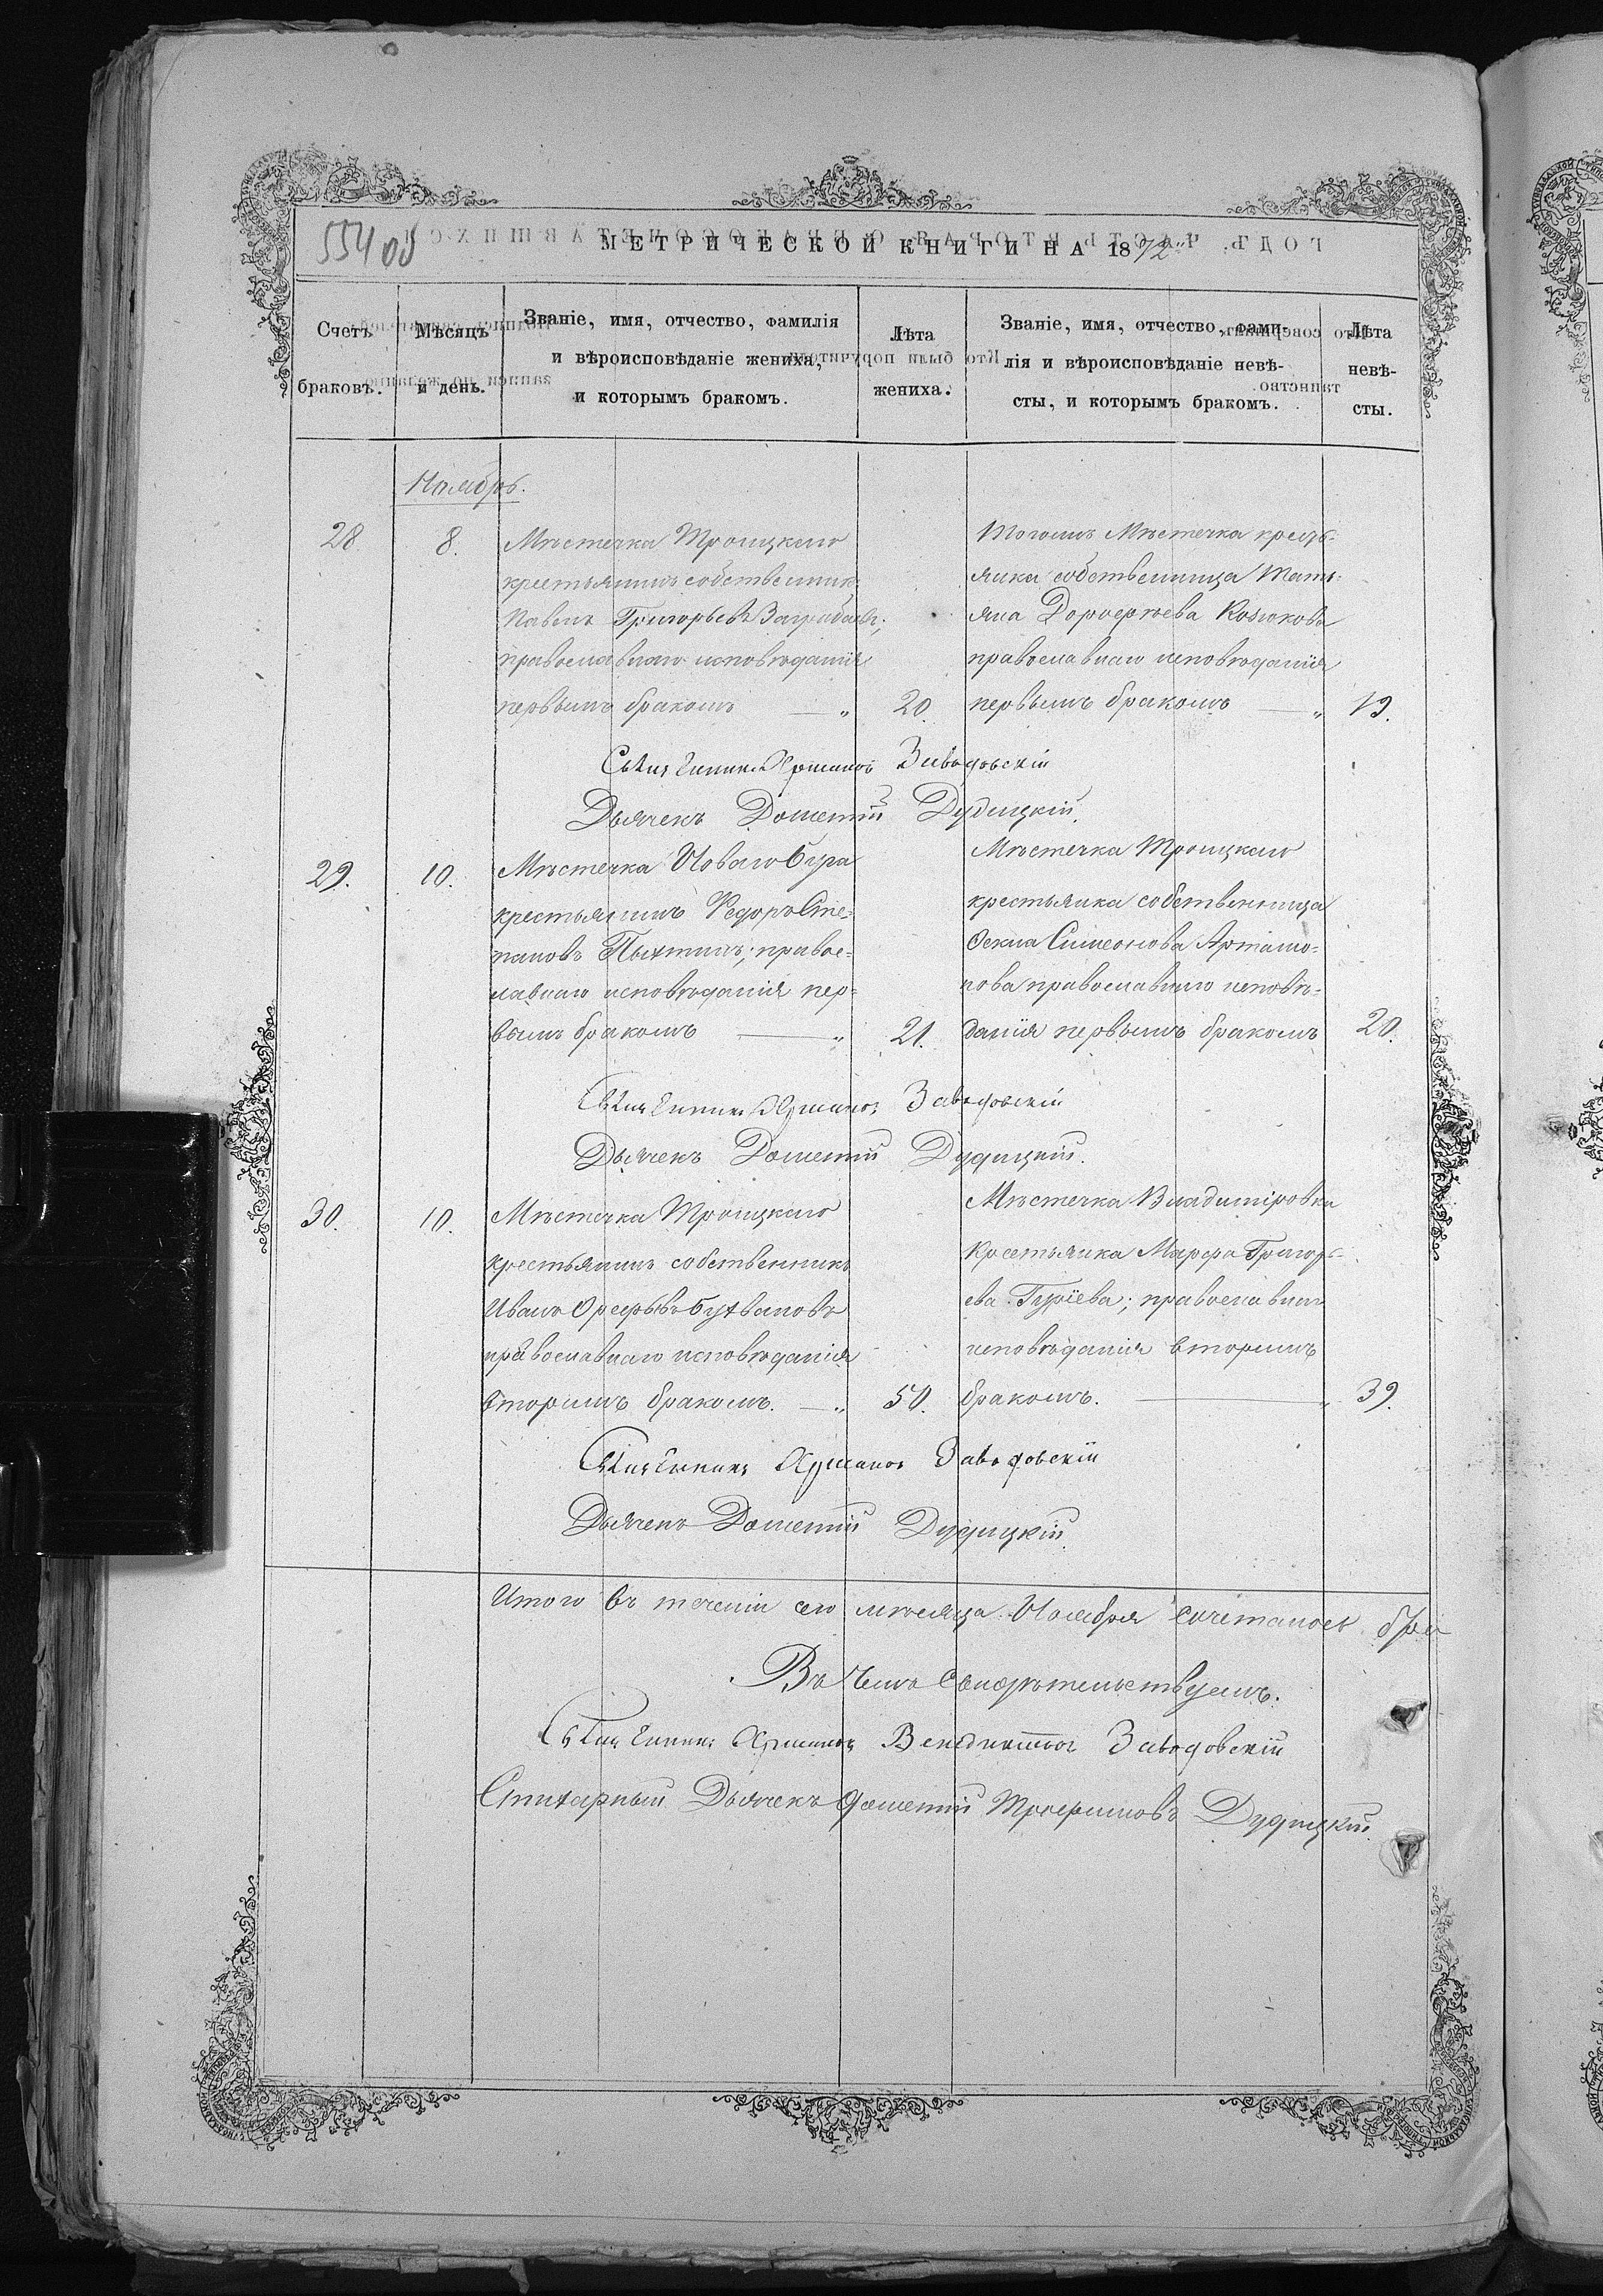 554 об
МЕТРИЧЕСКОЙ КНИГИ НА 1872
Счетъ браковъ.
Мѣсяцъ и день.
Званіе, имя, отчество, фамилія
и вѣроисповѣданіе жениха,
и которымъ бракомъ.
Лѣта
жениха.
Званіе, имя, отчество, фами-
лія и вѣроисповѣданіе невѣ-
сты, и которымъ бракомъ.
Лѣта
невѣ-
сты.
Ноябрь.
28
8.
Мѣстечка Троицкаго
крестьянинъ собственникъ
Павелъ Григорьевъ
православнаго исповѣданія
первымъ бракомъ — „
20.
Тогожъ Мѣстечка кресть-
янка собственница Тать-
яна Дорофеева Козюкова
православнаго исповѣданія
первымъ бракомъ — „
19.
Священникъ Заводовскій
Дьячекъ Дометій Дудицкій.
29.
10.
Мѣстечка Новаго Буга
крестьянинъ Ѳедоръ Сте-
пановъ Пыхтинъ; правос-
лавнаго исповѣданія пер-
вымъ бракомъ — „
21.
Мѣстечка Троицкаго
крестьянка собственница
Ѳекла Симеонова Артамо-
нова православнаго исповѣ-
данія первымъ бракомъ
20.
Священникъ Заводовскій
Дьячекъ Дометій Дудицкій.
30.
10.
Мѣстечка Троицкаго
крестьянинъ собственникъ
Иванъ
православнаго исповѣданія
вторымъ бракомъ. — „
50.
Мѣстечка Владимировка
Крестьянка Марфа Григорь-
ева Гуріева; православнаго
исповѣданія вторымъ
бракомъ. — „
39.
Священникъ Заводовскій
Дьячекъ Дометій Дудицкій.
Итого въ теченіи сего мѣсяца Ноября сочеталось
Въ чемъ свидѣтельствуемъ.
Священникъ Заводовскій
Дьячекъ Дометій Трофимовъ Дудицкій.